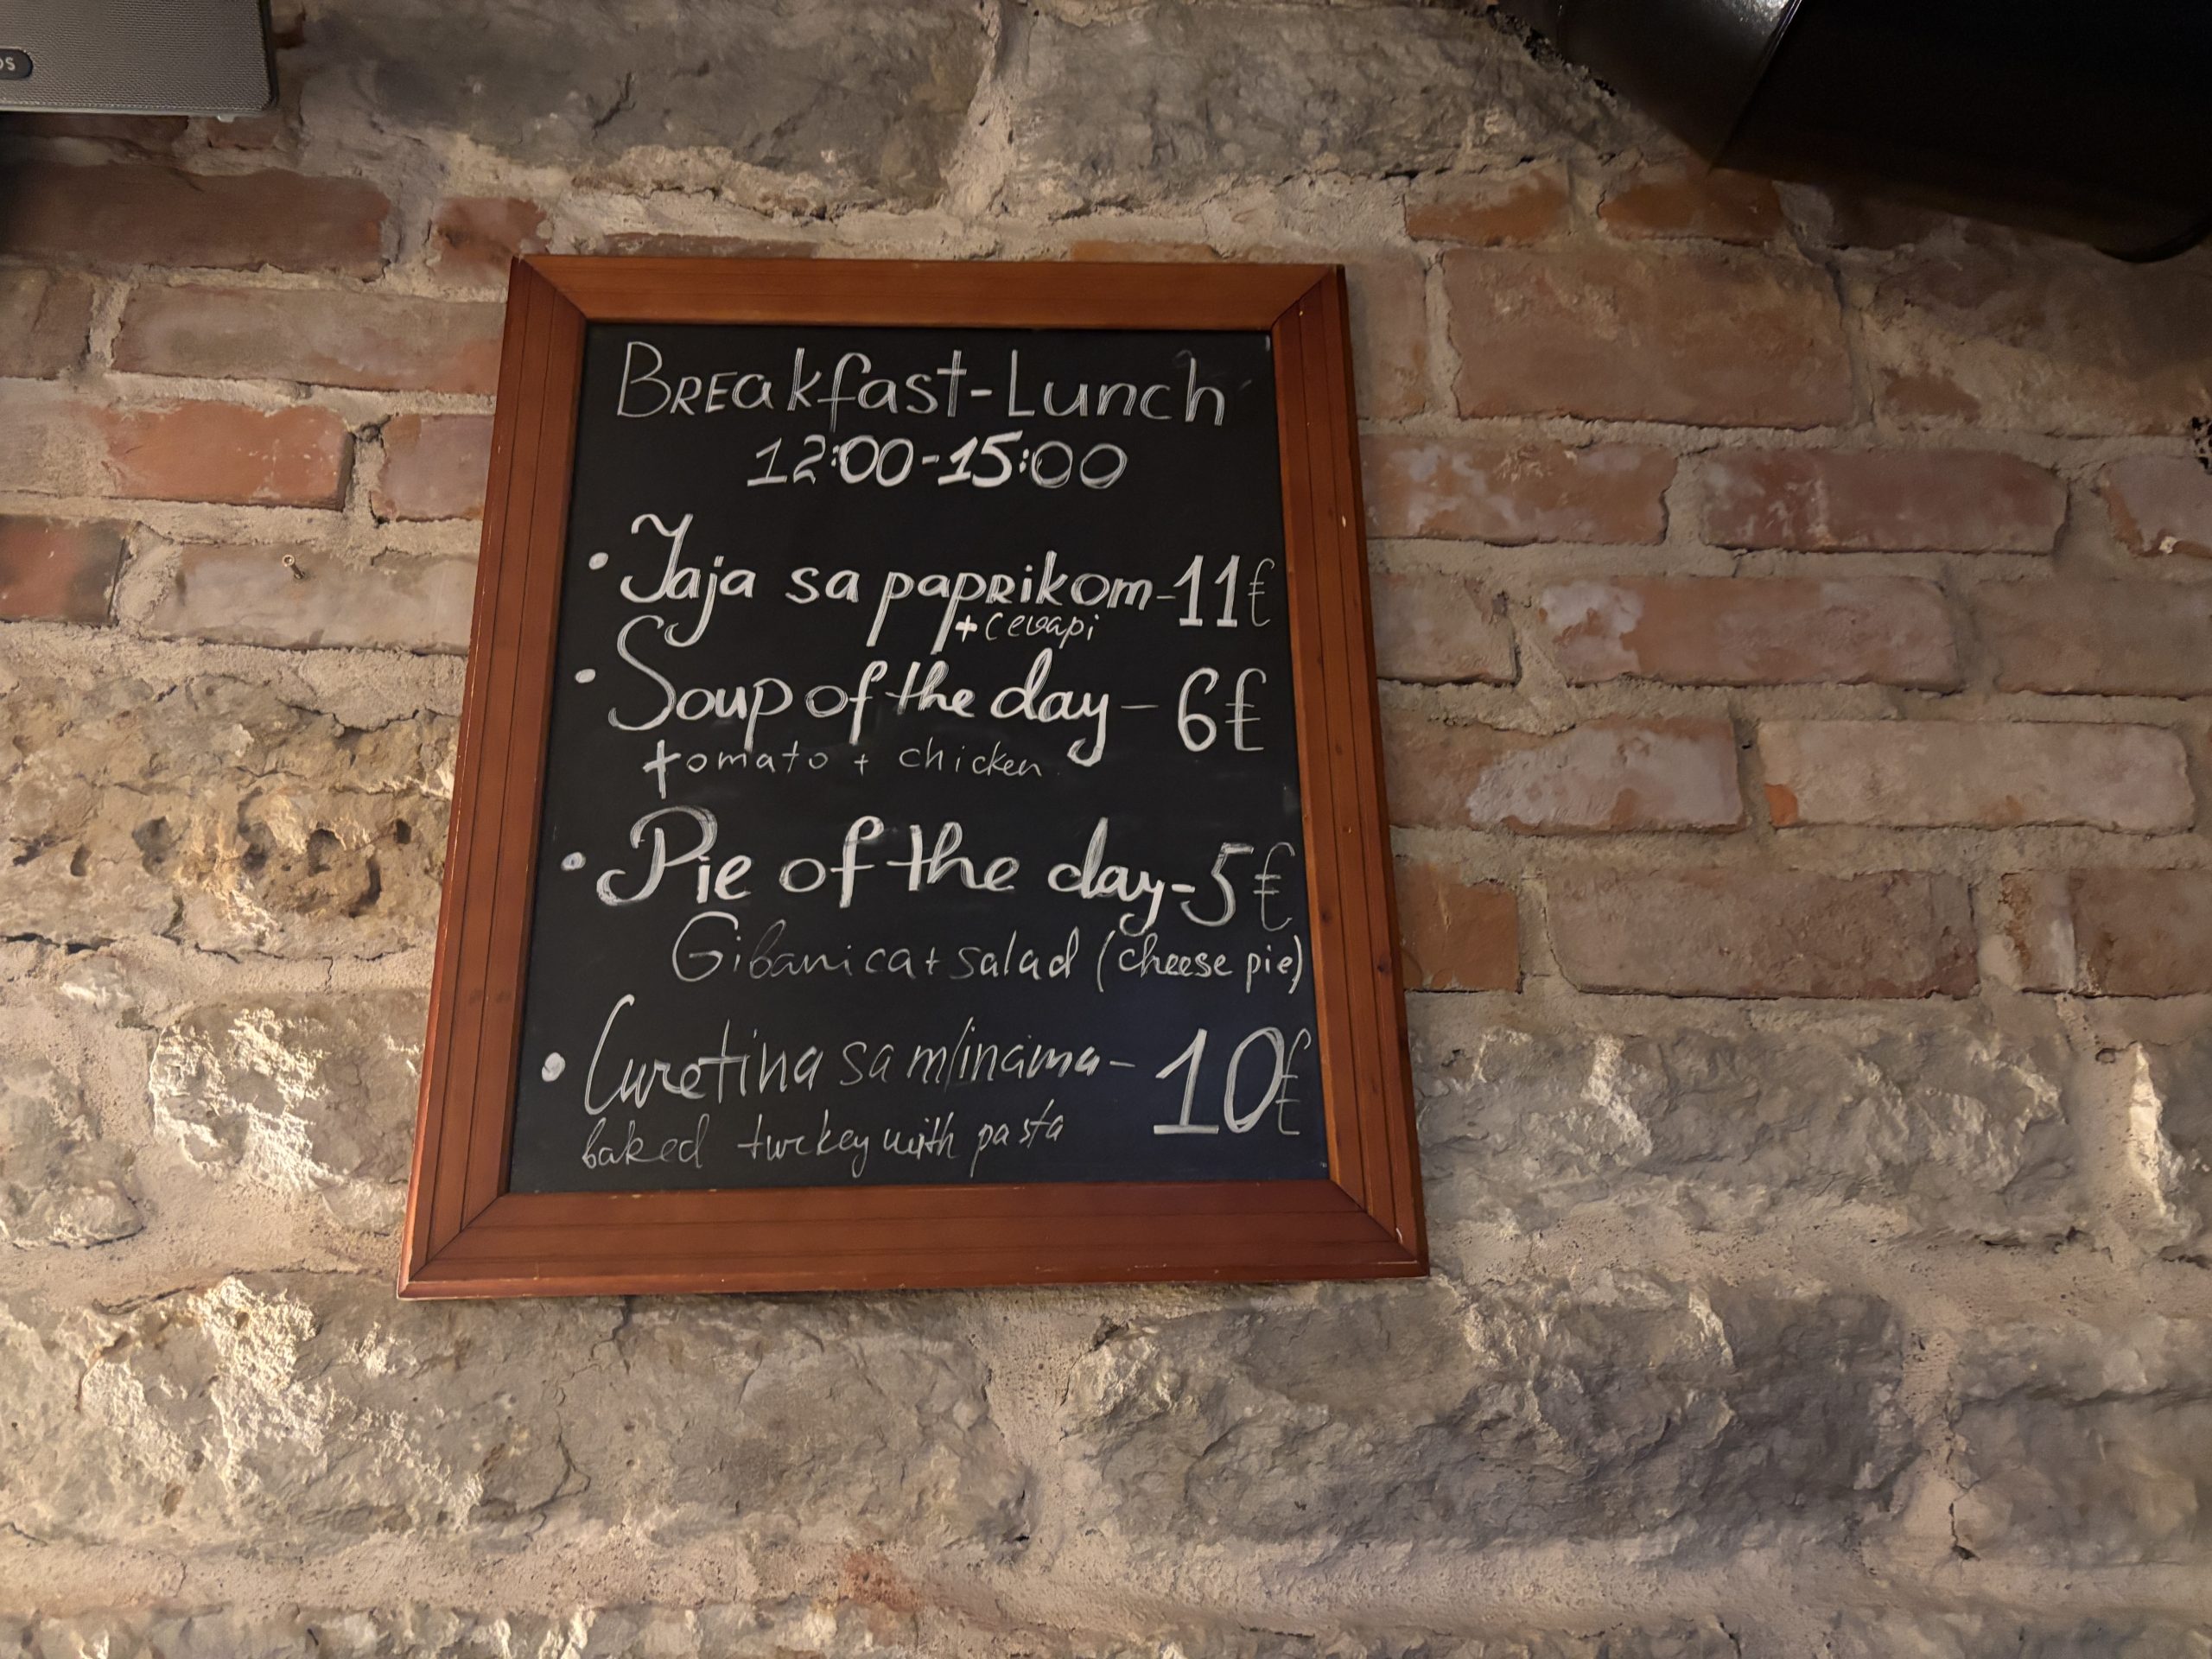 BREakfast-Lunch
12:00-15:00
• Jaja sa papRikom-11€
+cevapi
• Soup of the day - 6€
tomato + chicken
• Pie of the day-5€
Gibanica+salad (cheese pie)
• Curetina sa mlinama- 10€
baked turkey with pasta